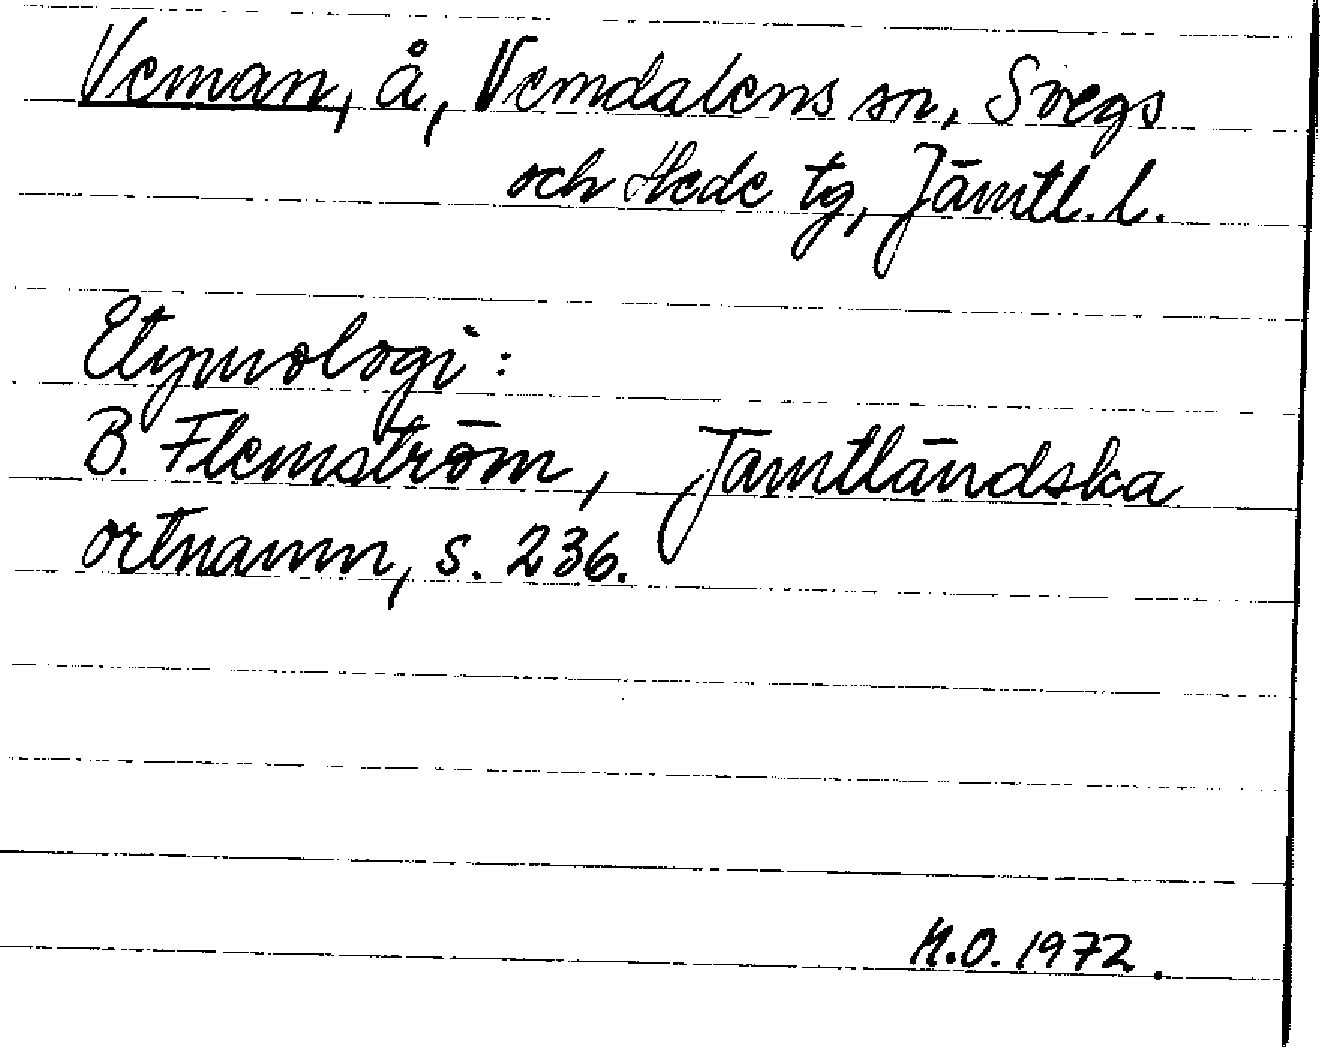 Veman, å, Vemdalens sn, Svegs
och Hede tg, Jämtl. l.
Etymologi:
B. Flemström, Jämtländska
ortnamn, s. 236.
M.O. 1972.